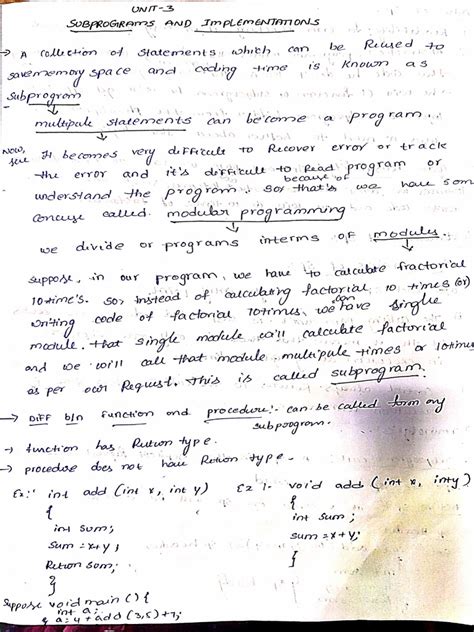 UNIT-3
SUBPROGRAMS AND IMPLEMENTATIONS
→ A collection of statements which can be Reused to
save memory space and coding time is known as
subprogram
↓
multipule statements can become a program.
↓
Now, see It becomes very difficult to Recover error or track
the error and it's difficult to Read program or
understand the program. so, because of that's we have som
concuse called modular programming
↓
we divide or programs interms of modules.
↓
suppose, in our program, we have to calculate fractorial
10time's. so, instead of calculating factorial 10 times (or)
writing code of factorial 10times, we can have single
module. that single module will calculate factorial
and we will call that module multipule times or 10times
as per our Request. This is called subprogram.
→ Diff b/n function and procedure:- can be called form any
subprogram.
→ function has Retion type.
→ procedure does not have Retion type.
Ex:- int add (int x, int y) Ex:- void add (int x, inty)
{ {
int sum; int sum;
sum = x+y; sum = x+y;
Retion som; }
}
suppose void main () {
int a;
{ a = 4 + add (3,5)+7;